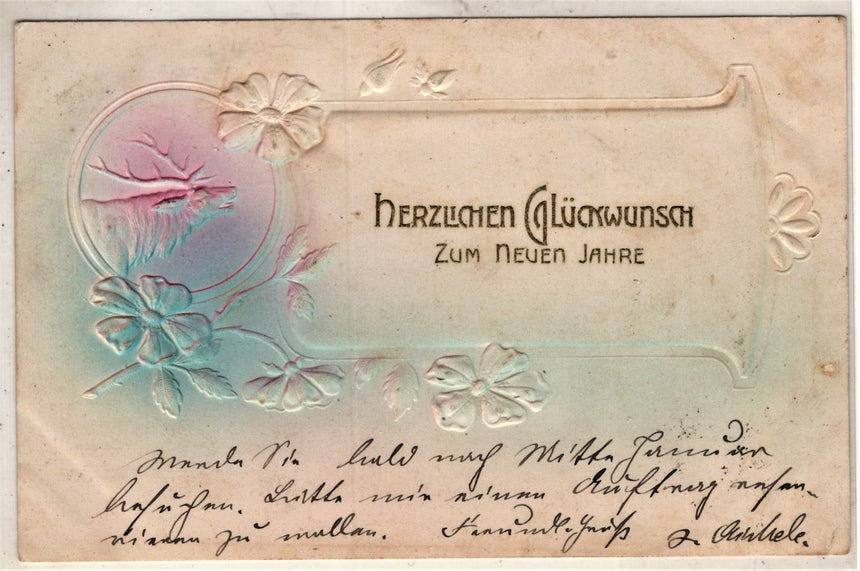 Herzlichen Glückwunsch
zum Neuen Jahre
Werde Sie bald nach Mitte Januar
besuchen. Bitte mir einen Auftrag reser-
vieren zu wollen. Freundl. Gruß